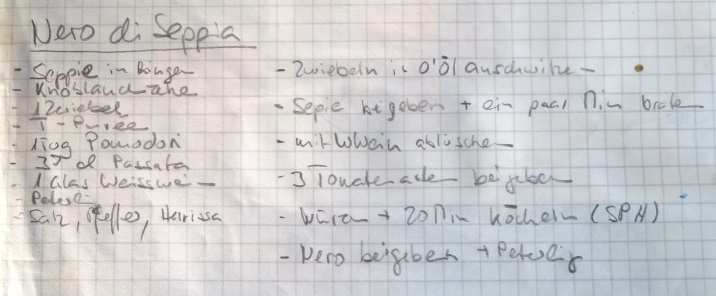 Nero di Seppia
- Seppie in Ringen
- Knoblauchzehe
- 1 Zwiebel
- T-Purée
- Pomodori
- dl Passata
- 1 Glas Weisswei
- Peterli
- Salz, Pfeffer, Harissa
- Zwiebeln in O'Öl anschwitze
- Sepie beigeben + ein paar Min brate
- mit WWein ablösche
- 3 Tomate beigeben
- Würzn + 20 Min köcheln (SPH)
- Nero beigeben + Peterlig